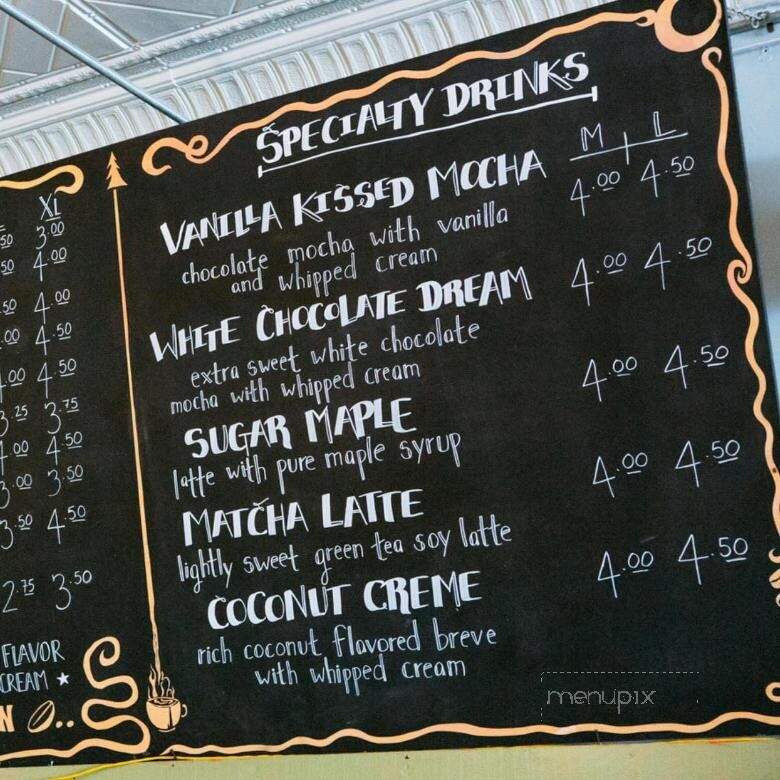 SPECIALTY DRINKS
M L
VANILLA KISSED MOCHA 4.00 4.50
chocolate mocha with vanilla
and whipped cream
WHITE CHOCOLATE DREAM 4.00 4.50
extra sweet white chocolate
mocha with whipped cream
SUGAR MAPLE 4.00 4.50
latte with pure maple syrup
MATCHA LATTE 4.00 4.50
lightly sweet green tea soy latte
COCONUT CREME 4.00 4.50
rich coconut flavored breve
with whipped cream
XL
.50 3.00
.50 4.00
.50 4.00
.00 4.50
.00 4.50
3.25 3.75
4.00 4.50
3.00 3.50
3.50 4.50
2.75 3.50
FLAVOR
CREAM ★
N
menupix